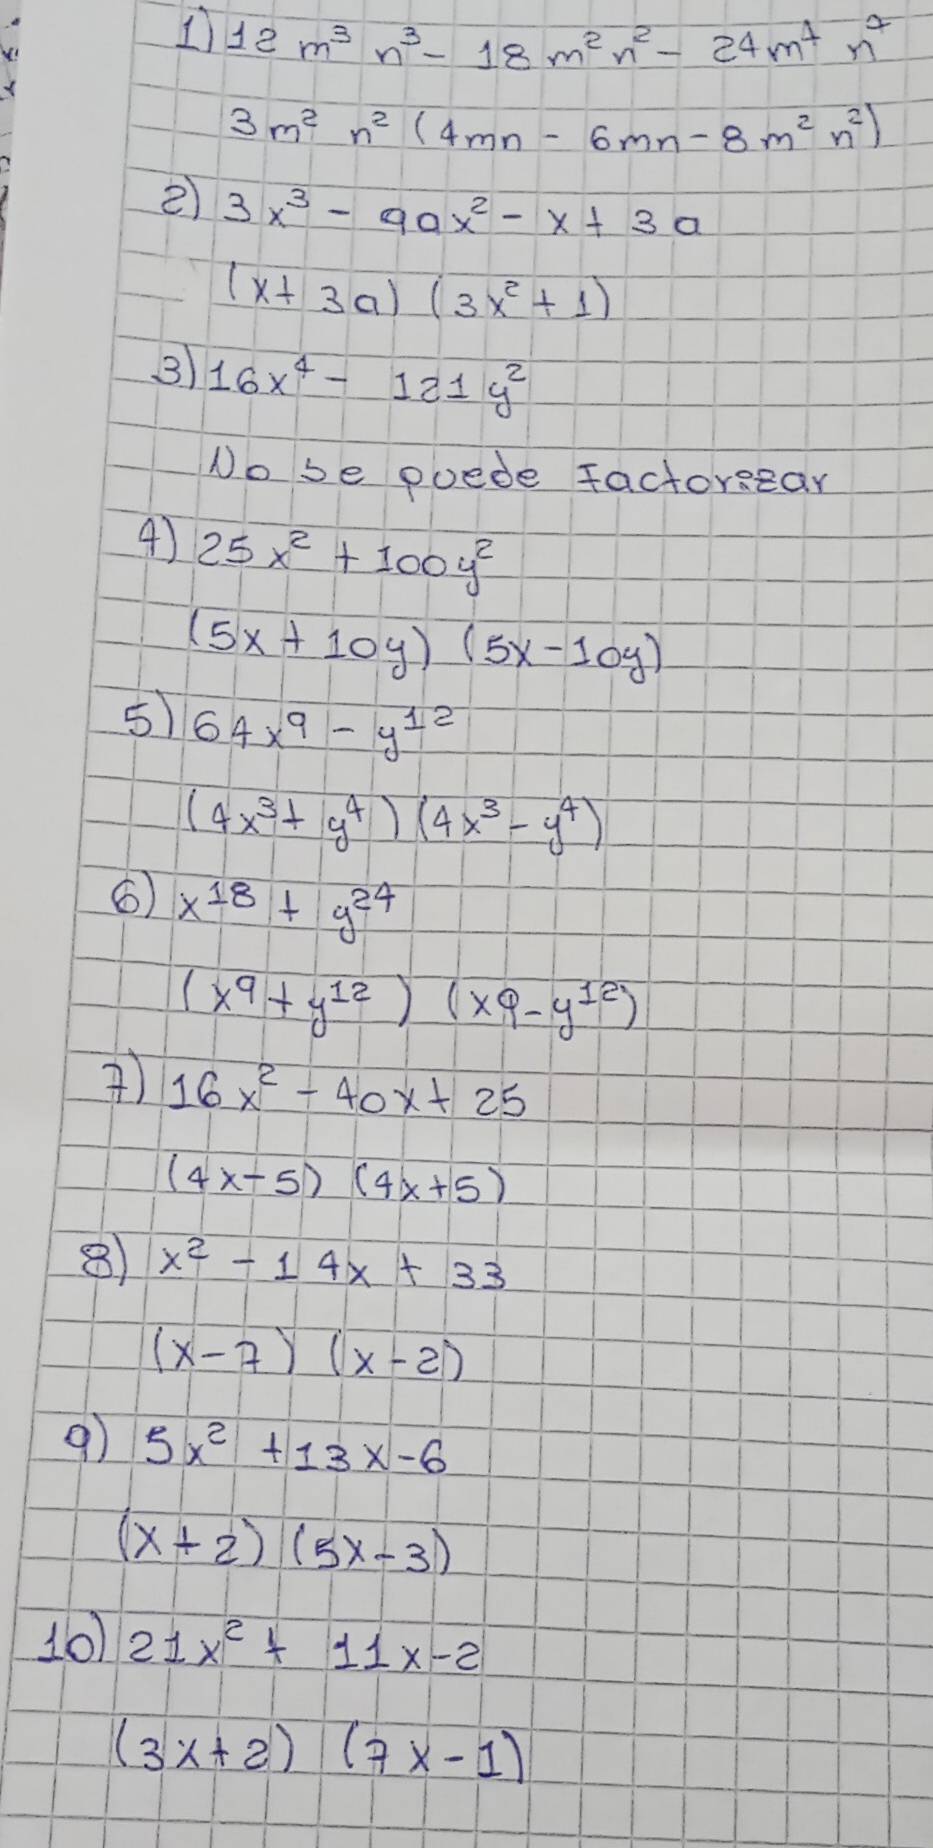 1) 12 m³ n³ - 18 m² n² - 24 m⁴ n⁴
3m² n² (4mn - 6mn - 8m² n²)
2) 3x³ - 9ax² - x + 3a
(x + 3a) (3x² + 1)
3) 16x⁴ - 121y²
No se puede Factorizar
4) 25x² + 100y²
(5x + 10y) (5x - 10y)
5) 64x⁹ - y¹²
(4x³ + y⁴) (4x³ - y⁴)
6) x¹⁸ + y²⁴
(x⁹ + y¹²) (x9 - y¹²)
7) 16x² - 40x + 25
(4x - 5) (4x + 5)
8) x² - 14x + 33
(x - 7) (x - 2)
9) 5x² + 13x - 6
(x + 2) (5x - 3)
10) 21x² + 11x - 2
(3x + 2) (7x - 1)